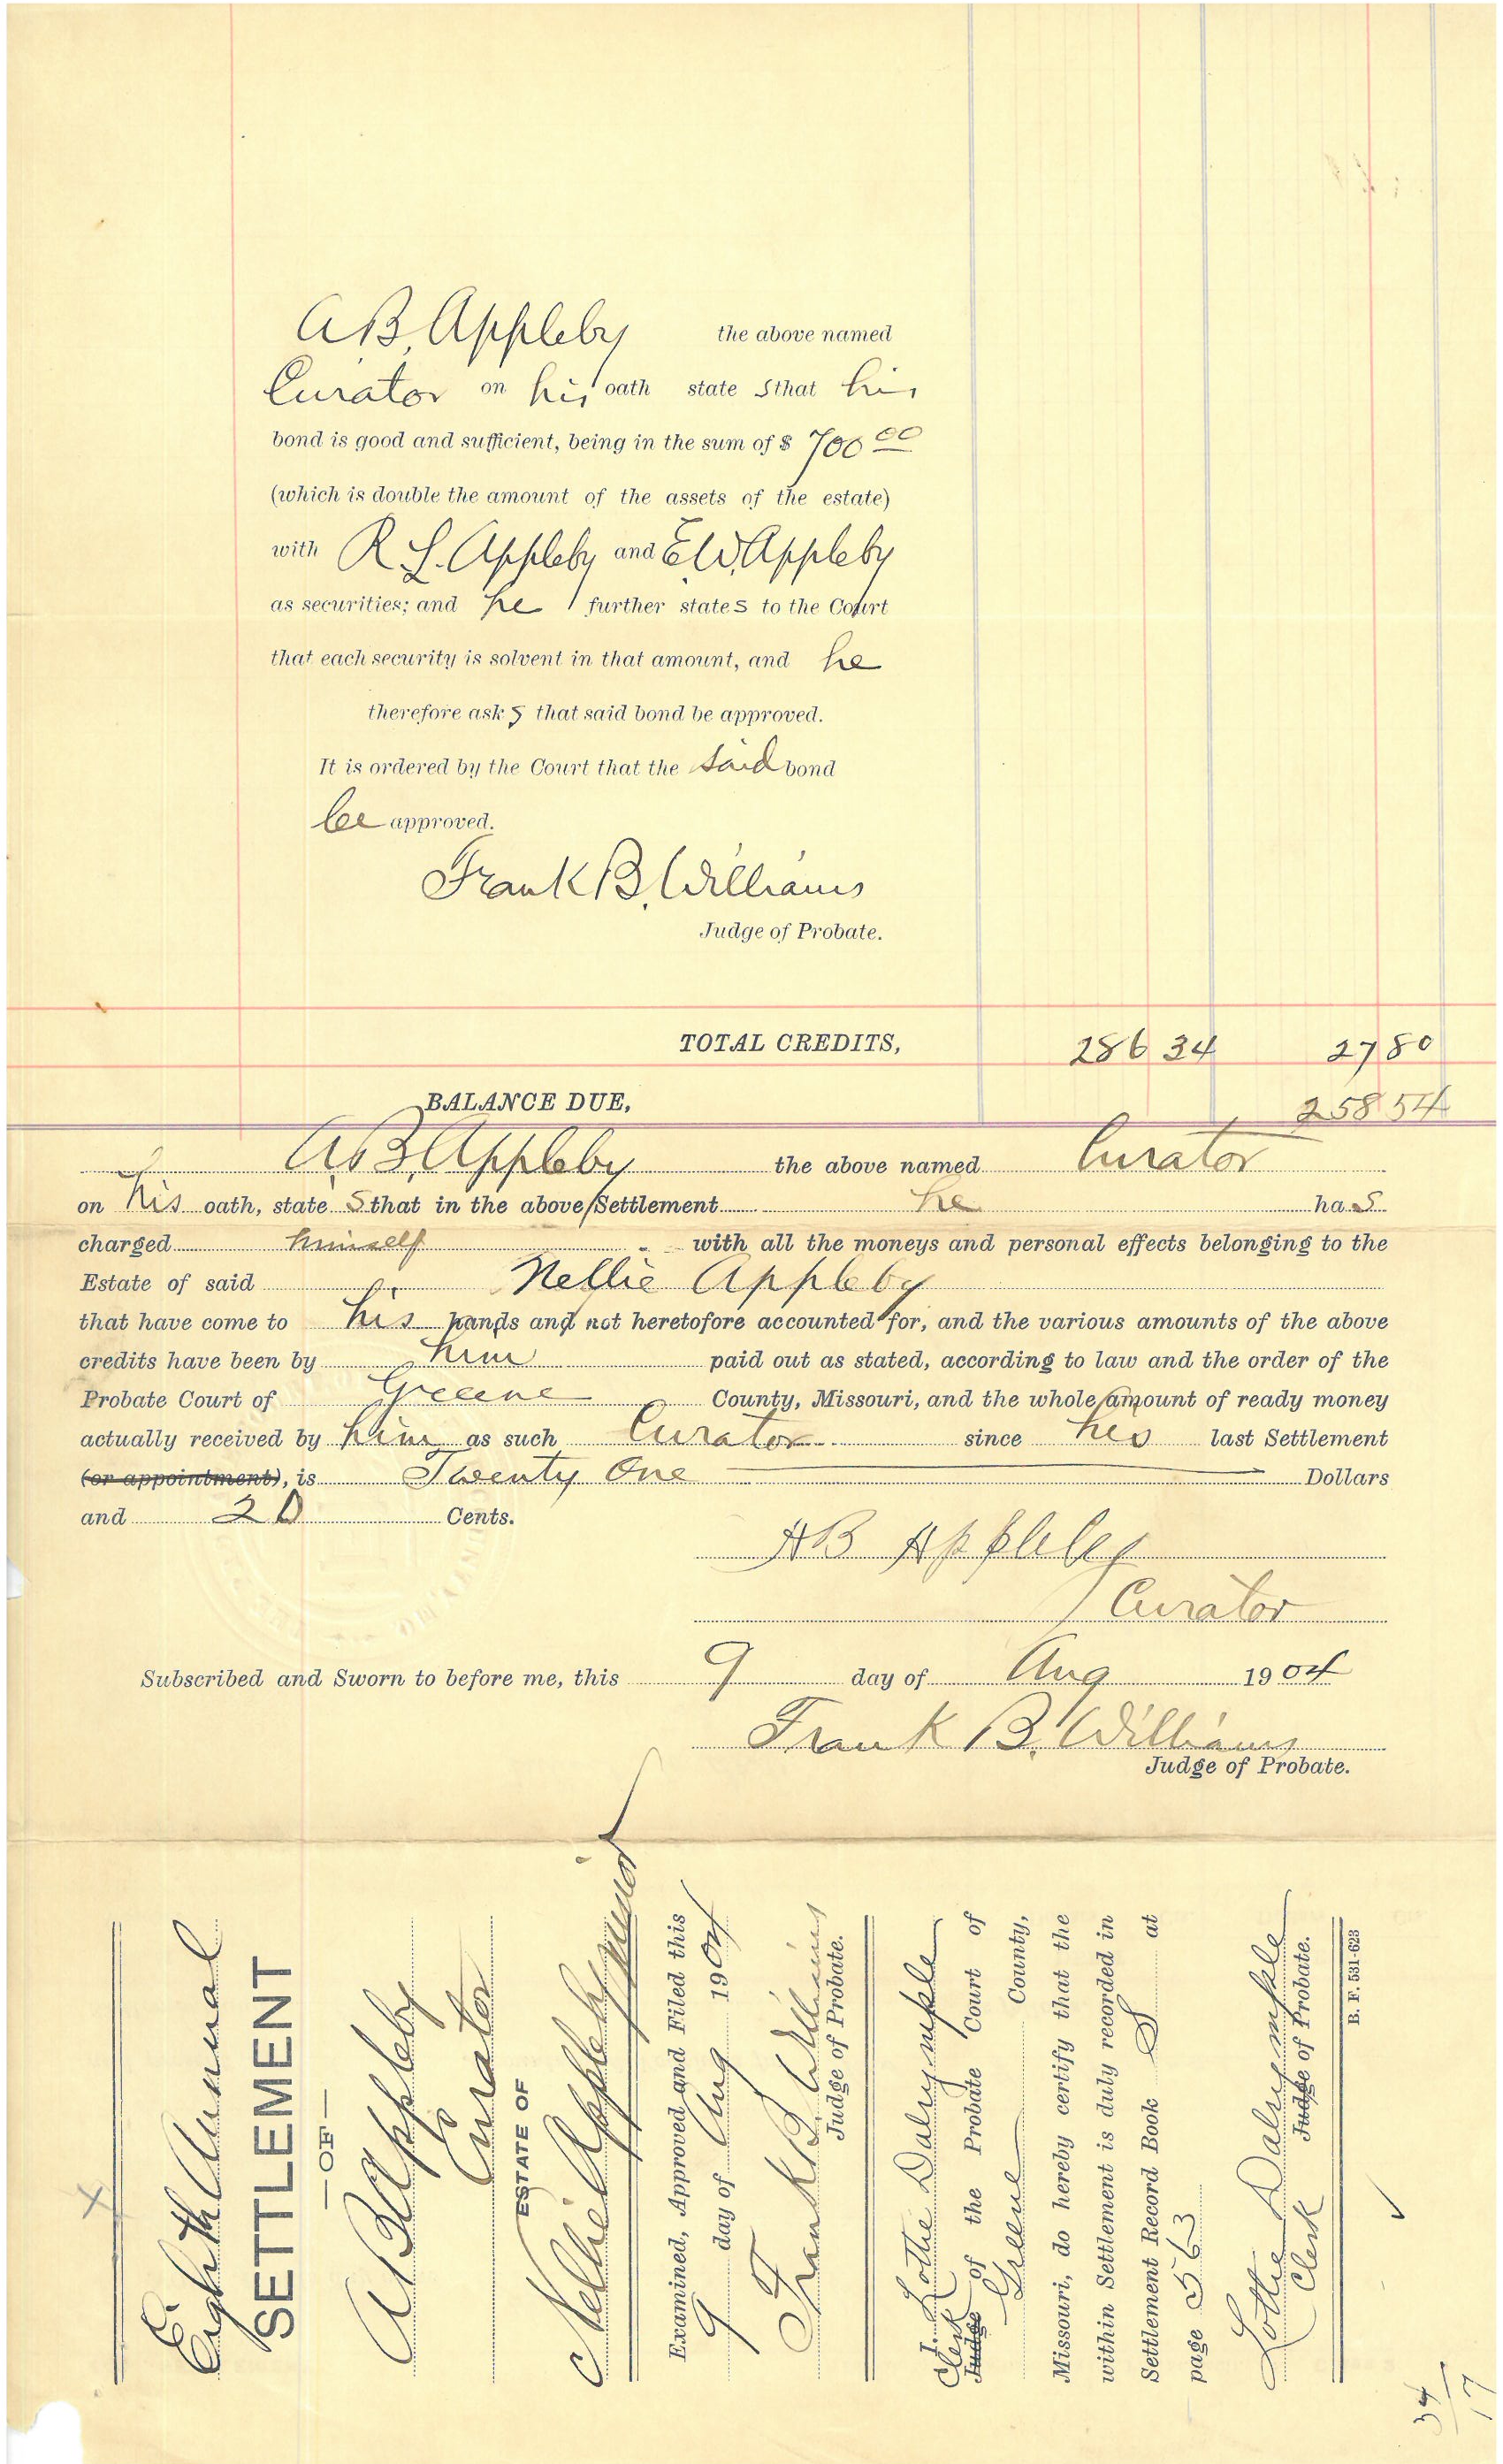 A.B. Appleby the above named
Curator on his oath state s that his
bond is good and sufficient, being in the sum of $ 700 00
(which is double the amount of the assets of the estate)
with R L. Appleby and E.W. Appleby
as securities; and he further states to the Court
that each security is solvent in that amount, and he
therefore ask s that said bond be approved.
It is ordered by the Court that the said bond
be approved.
Frank B. Williams
Judge of Probate.
TOTAL CREDITS, 286 34 27 80
BALANCE DUE, 258 54
A.B. Appleby the above named Curator
on his oath, state s that in the above Settlement he ha s
charged himself with all the moneys and personal effects belonging to the
Estate of said Nellie Appleby
that have come to his hands and not heretofore accounted for, and the various amounts of the above
credits have been by him paid out as stated, according to law and the order of the
Probate Court of Greene County, Missouri, and the whole amount of ready money
actually received by him as such Curator since his last Settlement
(or appointment), is Twenty One Dollars
and 20 Cents.
A B Appleby
Curator
Subscribed and Sworn to before me, this 9 day of Aug 1904
Frank B. Williams
Judge of Probate.
Eighth Annual
SETTLEMENT
—OF—
A B Appleby
Curator
ESTATE OF
Nellie Appleby minor
Examined, Approved and Filed this
9 day of Aug 1904
Frank B. Williams
Judge of Probate.
I, Lottie Dalrymple
Clerk
Judge of the Probate Court of
Greene County,
Missouri, do hereby certify that the
within Settlement is duly recorded in
Settlement Record Book S at
page 563
Lottie Dalrymple
Clerk Judge of Probate.
B. F. 531-623
34
17